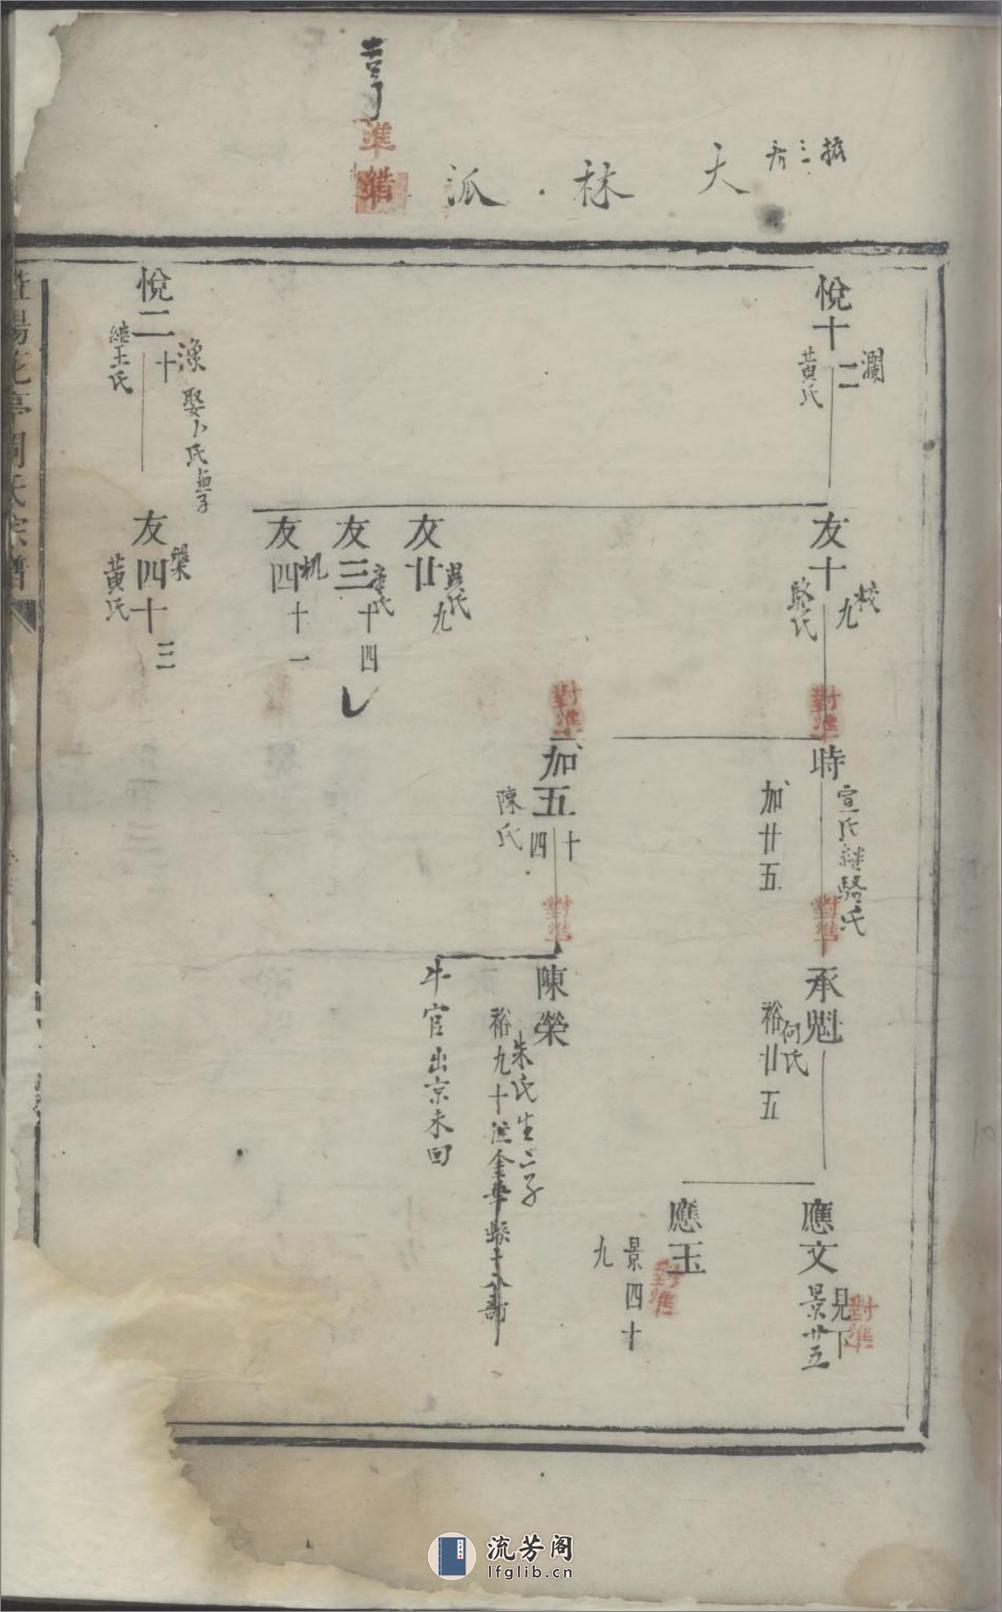 大林派
準
悅十二
瀾
黃氏
友十九
校
駱氏
對準
時
宣氏繼駱氏
加廿五
對準
承魁
何氏
裕廿五
應文
景廿五
見下
對準
應玉
景四十九
對準
對準
加五十四
陳氏
對準
陳榮
朱氏生二子
裕九十
牛官出京未回
友廿九
友三十四
友四十一
机
悅二十
漁
娶卜氏無子
繼王氏
友四十三
榘
黃氏
暨陽花亭周氏宗譜
流芳阁
lfglib.cn